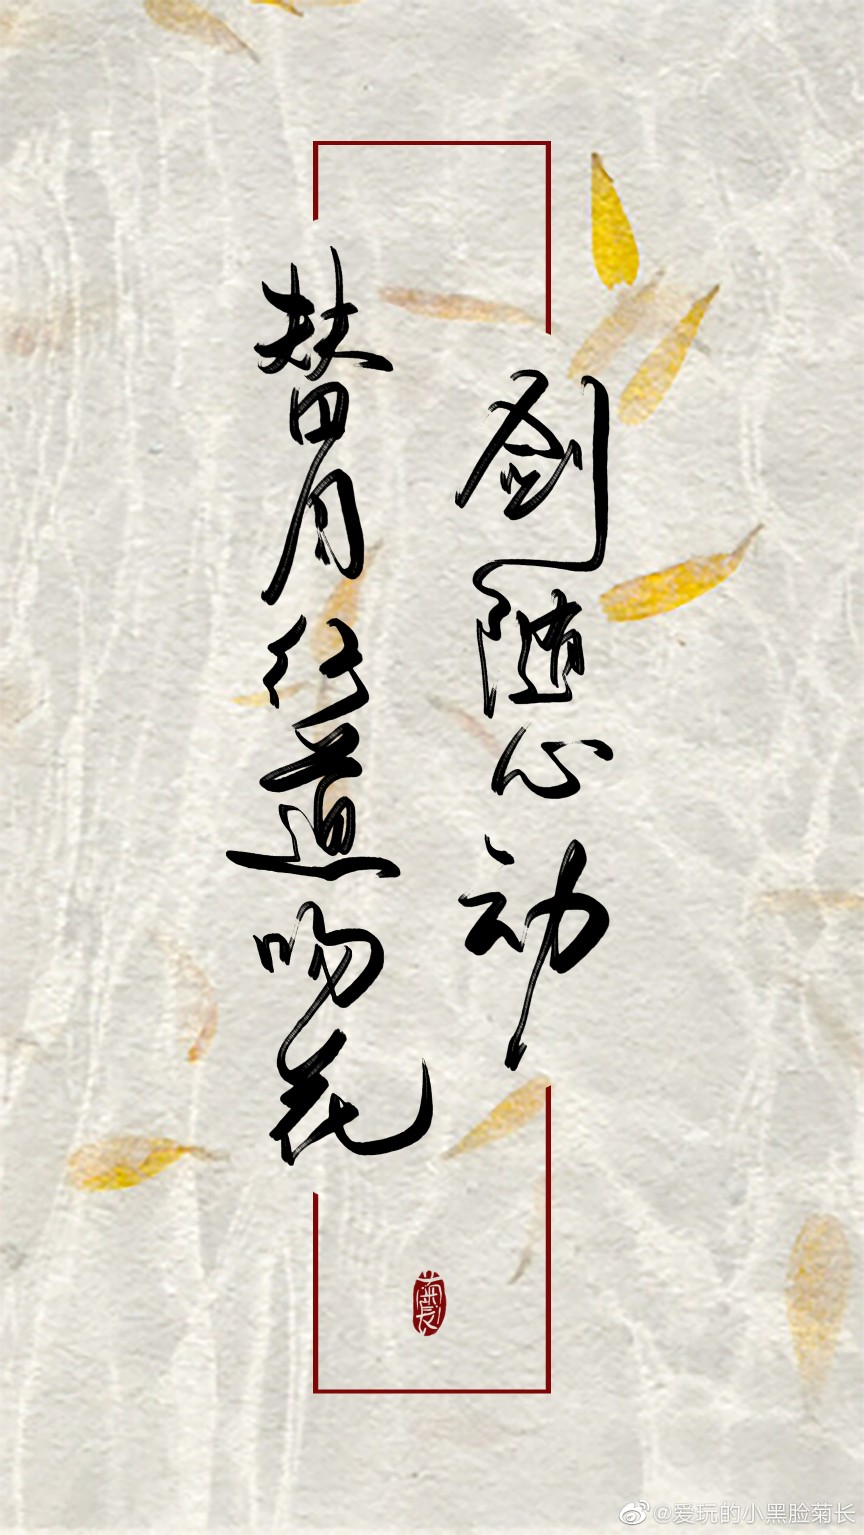 剑随心动
替月行道吻花
菊长
@爱玩的小黑脸菊长